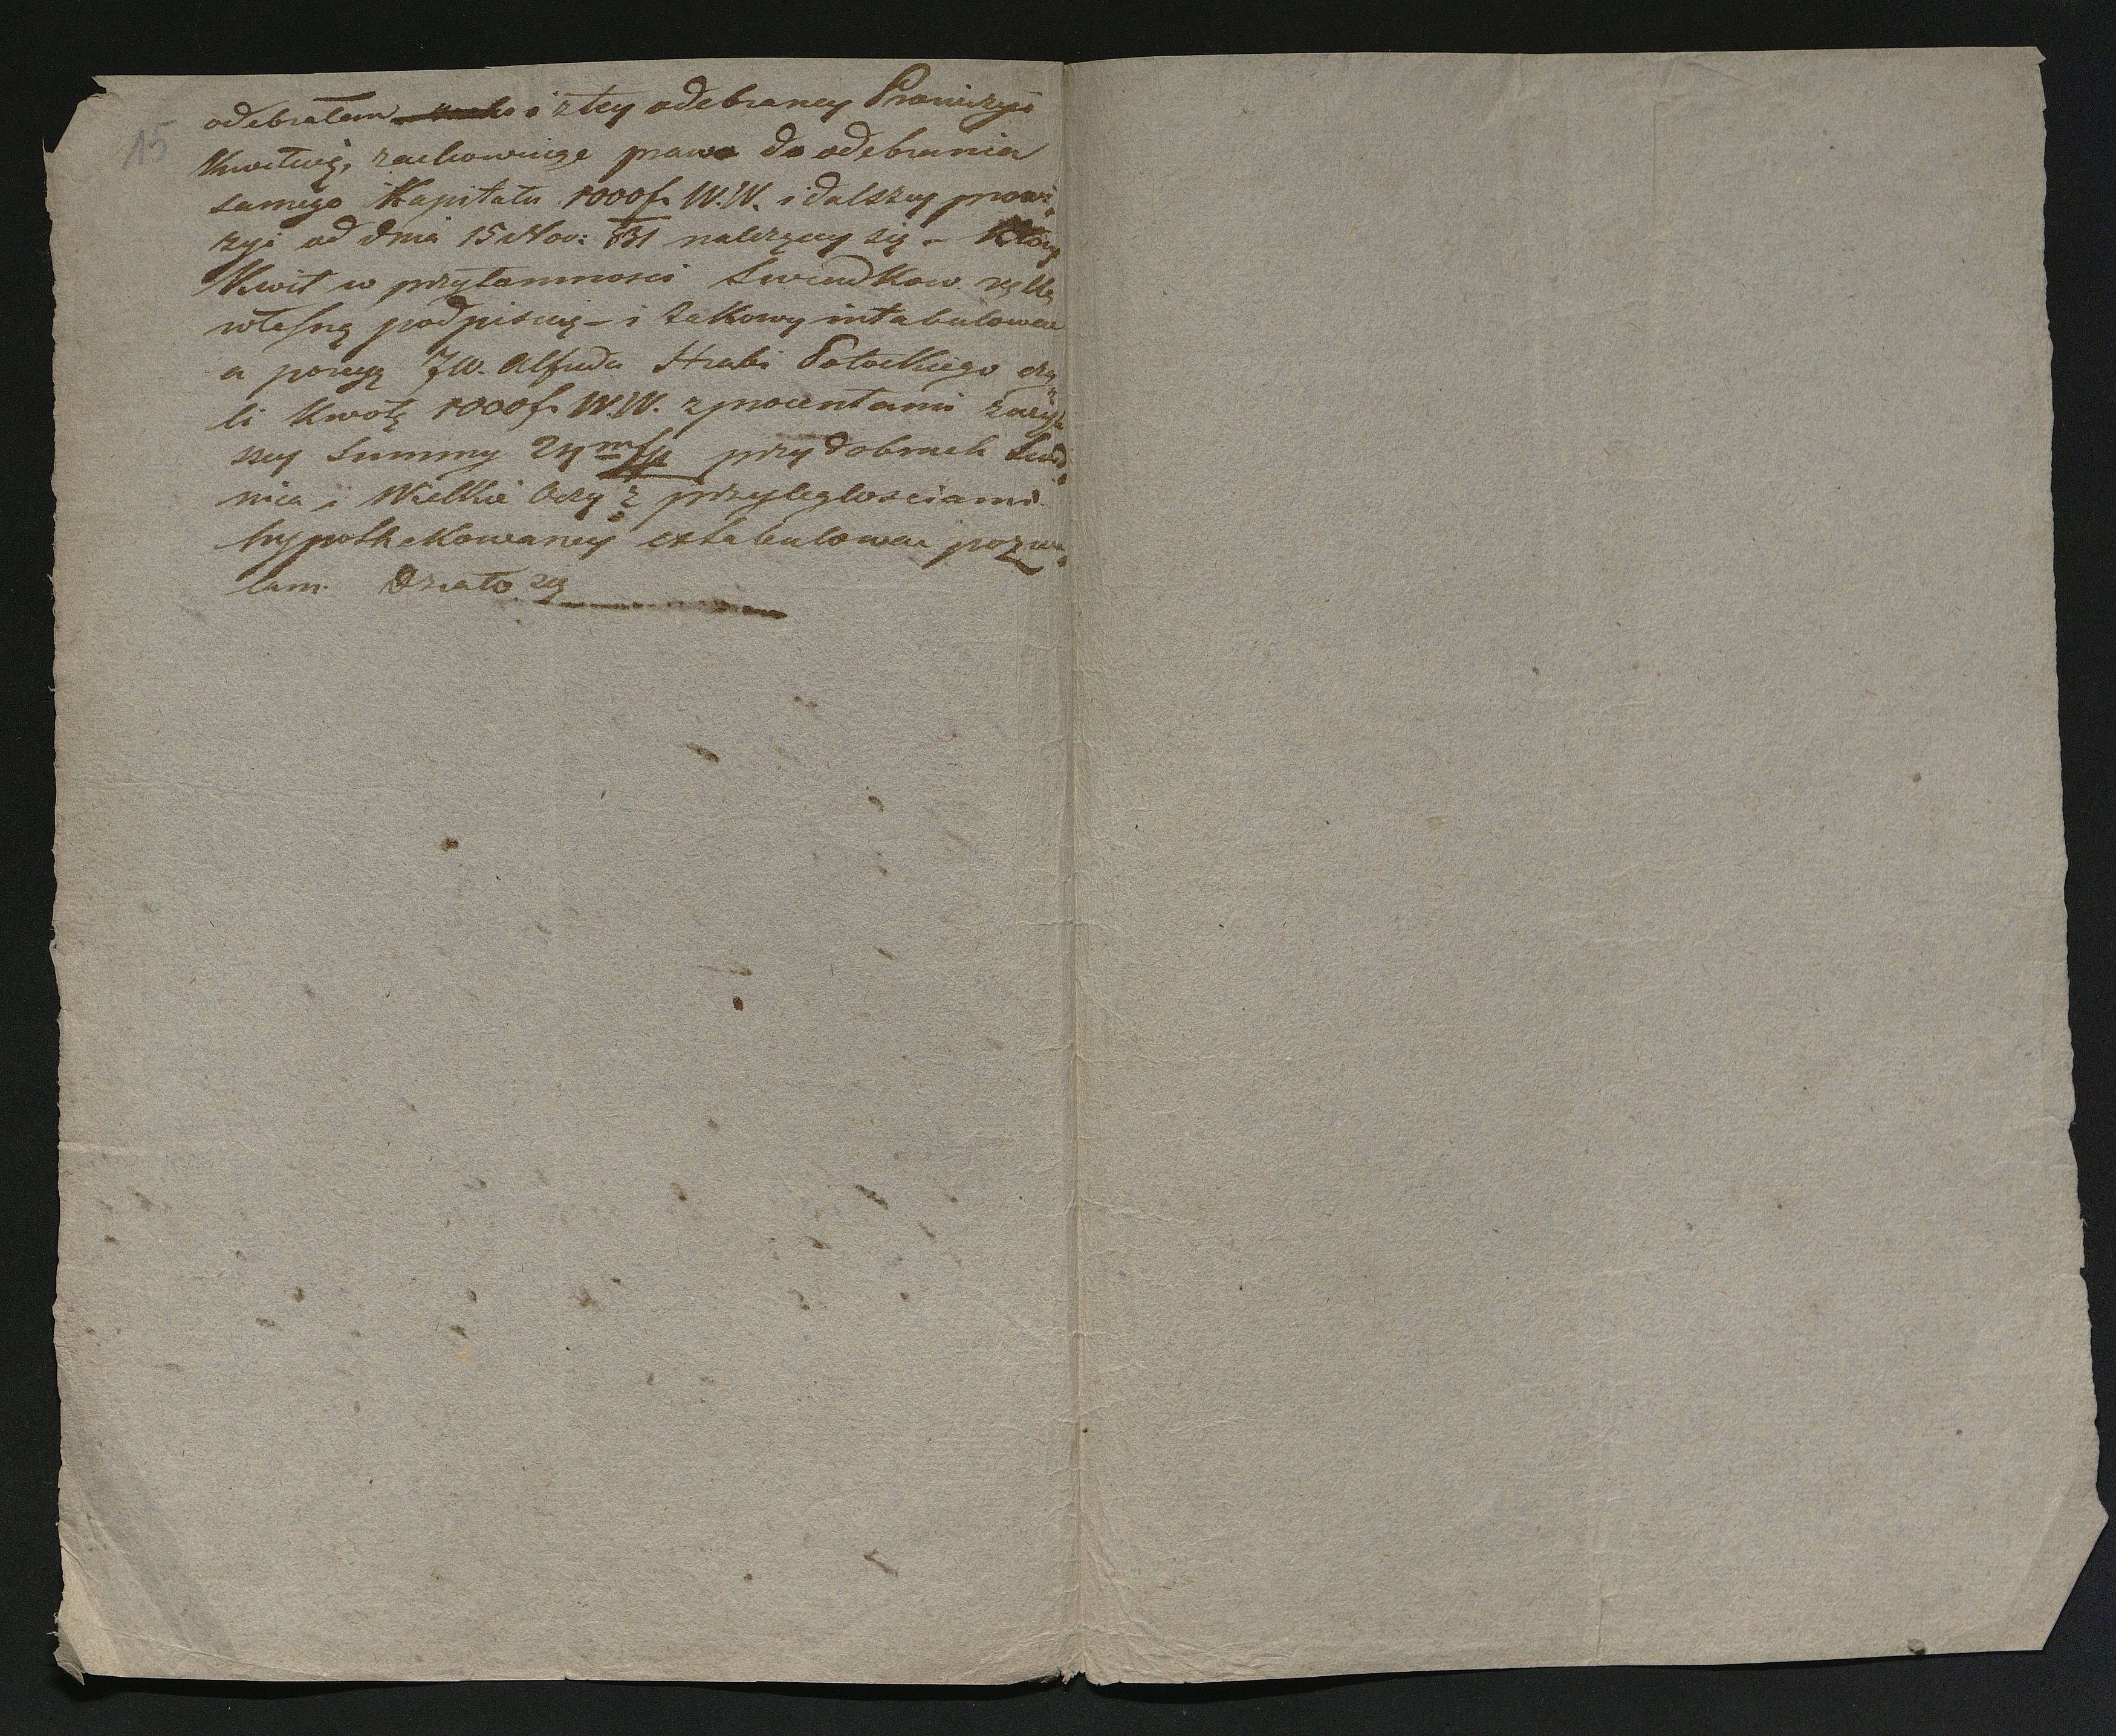 15
odebrałem i z tey odebraney Prowizyi
Kwituię, zachowuiąc prawo do odebrania
samego Kapitału 1000 f. W.W. i dalszey prowi„
zyi od dnia 15 Nov: 831 należącey się – Który
Kwit w przytomności Swiadkow ręką
własną podpisuię – i takowy intabulować
a porcyą JW. Alfreda Hrabi Potockiego czy„
li Kwotę 1000 f. W.W. z procentami
szey Summy 24 przy dobrach
nica i Wielkie Oczy z przyległosciami
hypothekowaney extabulować pozwa„
lam. Działo się